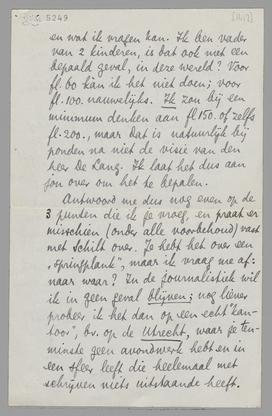 5249
en wat ik vragen kan. Ik ben vader
van 2 kinderen, is dat ook niet een
bepaald geval, in deze wereld? Voor
fl. 60 kan ik het niet doen; voor
fl. 100. nauwelijks. Ik zou bij een
minimum denken aan fl 150. of zelfs
fl. 200., maar dat is natuurlijk bij
ponden na niet de visie van den
heer De Lang. Ik laat het dus aan
jou over om het te bepalen.
Antwoord me dus nog even op de
3 punten die ik je vroeg, en praat er
misschien (onder alle voorbehoud) vast
met Schilt over. Je hebt het over een
„springplank", maar ik vraag me af:
naar waar? In de journalistiek wil
ik in geen geval blijven; nog liever
probeer ik het dan op een echt „kan-
toor", bv. op de Utrecht, waar je ten-
minste geen avondwerk hebt en in
een sfeer leeft die heelemaal met
schrijven niets uitstaande heeft.